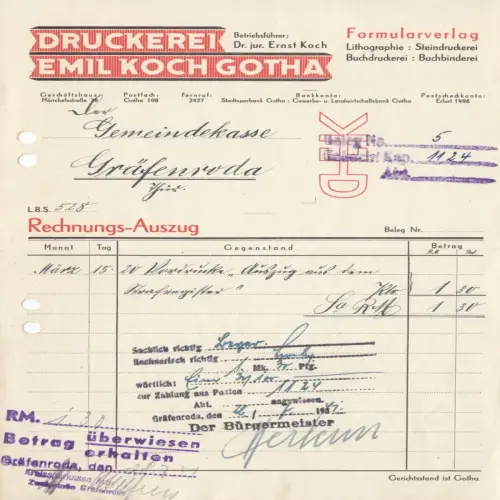 DRUCKEREI
EMIL KOCH GOTHA
Betriebsführer:
Dr. jur. Ernst Koch
Formularverlag
Lithographie : Steindruckerei
Buchdruckerei : Buchbinderei
Geschäftshaus: Postfach: Fernruf: Bankkonto: Postscheckkonto:
Mönchelsstraße 28 Gotha 108 2427 Stadtsparbank Gotha : Gewerbe- u. Landwirtschaftsbank Gotha Erfurt 1498
Der
Gemeindekasse
Gräfenroda
Thür.
EKD
Beleg No. 5
Kap. 1124
Abt.
L.B.S. 528
Rechnungs-Auszug
Beleg Nr.
Monat Tag Gegenstand Betrag
RM Rpf
März 15. 20 Vordrucke „Auszug aus dem
Strafregister" 1 30
Sa RM 1 30
Sachlich richtig
Rechnerisch richtig
Mk. 30 Pfg.
wörtlich: Eine
zur Zahlung aus Position 1124
Abt. angewiesen.
Gräfenroda, den 19
Der Bürgermeister
RM. 1.30
Betrag überwiesen
erhalten
Gräfenroda, den
Kreissparkasse
Zweigstelle Gräfenroda
Gerichtsstand ist Gotha.